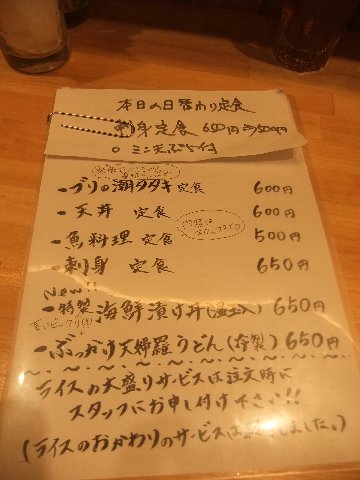 本日の日替わり定食
刺身定食 650円
○ ミニ天ぷら付
-ブリの潮タタキ 定食 600円
-天丼 定食 600円
-魚料理 定食 500円
-刺身 定食 650円
New!!
-特製 海鮮漬け丼(温玉入) 650円
-ぶっかけ天婦羅うどん(特製) 650円
ライスの大盛りサービスは注文時に
スタッフにお申し付け下さい!!
(ライスのおかわりのサービスは終了しました。)